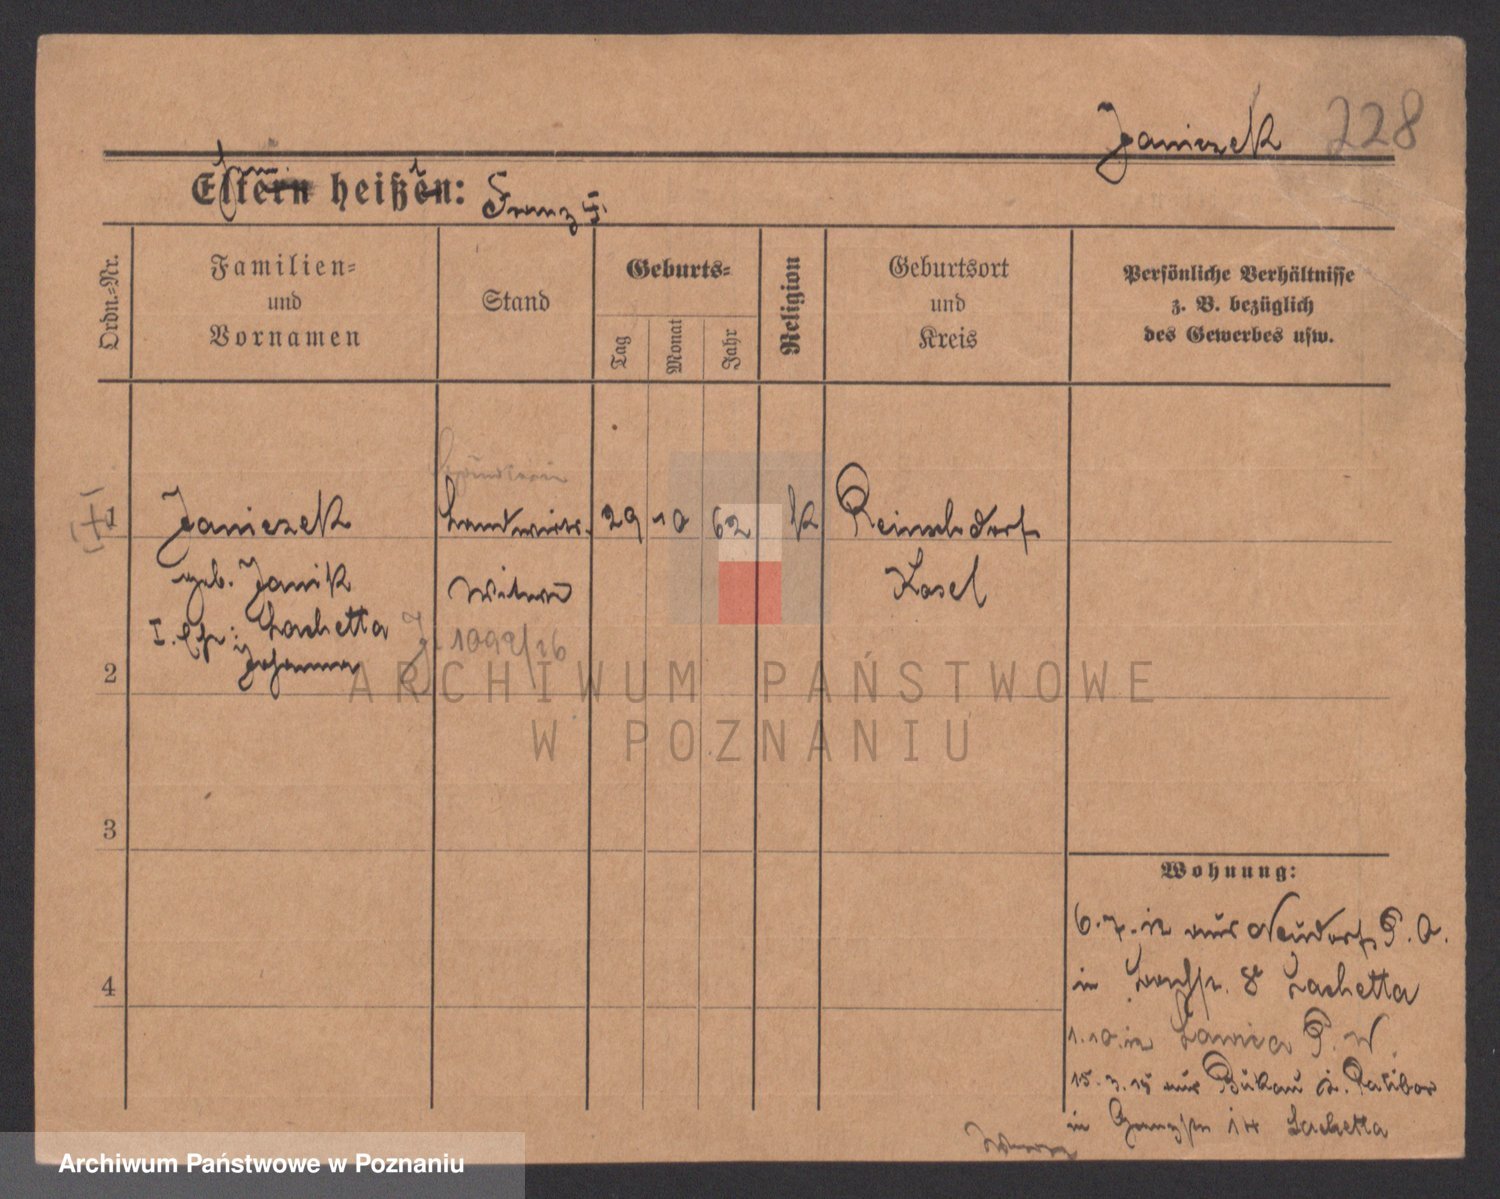 Janiczek 228
Eltern heißen: Franz
Ordn.-Nr.
Familien-
und
Vornamen
Stand
Geburts-
Tag
Monat
Jahr
Religion
Geburtsort
und
Kreis
Persönliche Verhältnisse
z. B. bezüglich
des Gewerbes usw.
1 Janiczek Landwirts- 29 10 62 k Reinschdorf
geb. Janik Witwe Kosel
I. Lachetta 1092/26
Johanna
2
3
4
Wohnung:
6.7.12 aus Neudorf P. O.
in 8 Lachetta
1.10.12 P. W.
15.3.15 aus Ratibor
in 14 Lachetta
ARCHIWUM PAŃSTWOWE
W POZNANIU
Archiwum Państwowe w Poznaniu